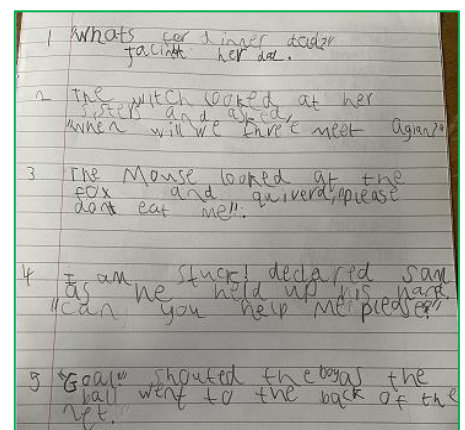 1 "Whats for dinner today
her dad.
2 The witch looked at her
sisters and asked,
"when will we three meet agian?"
3 The Mouse looked at the
fox and quiverd, "please
dont eat me!".
4 I am stuck! declared Sam
as he held up his hand.
"can you help me please?"
5 "Goal!" shouted the boy as the
ball went to the back of the
net.